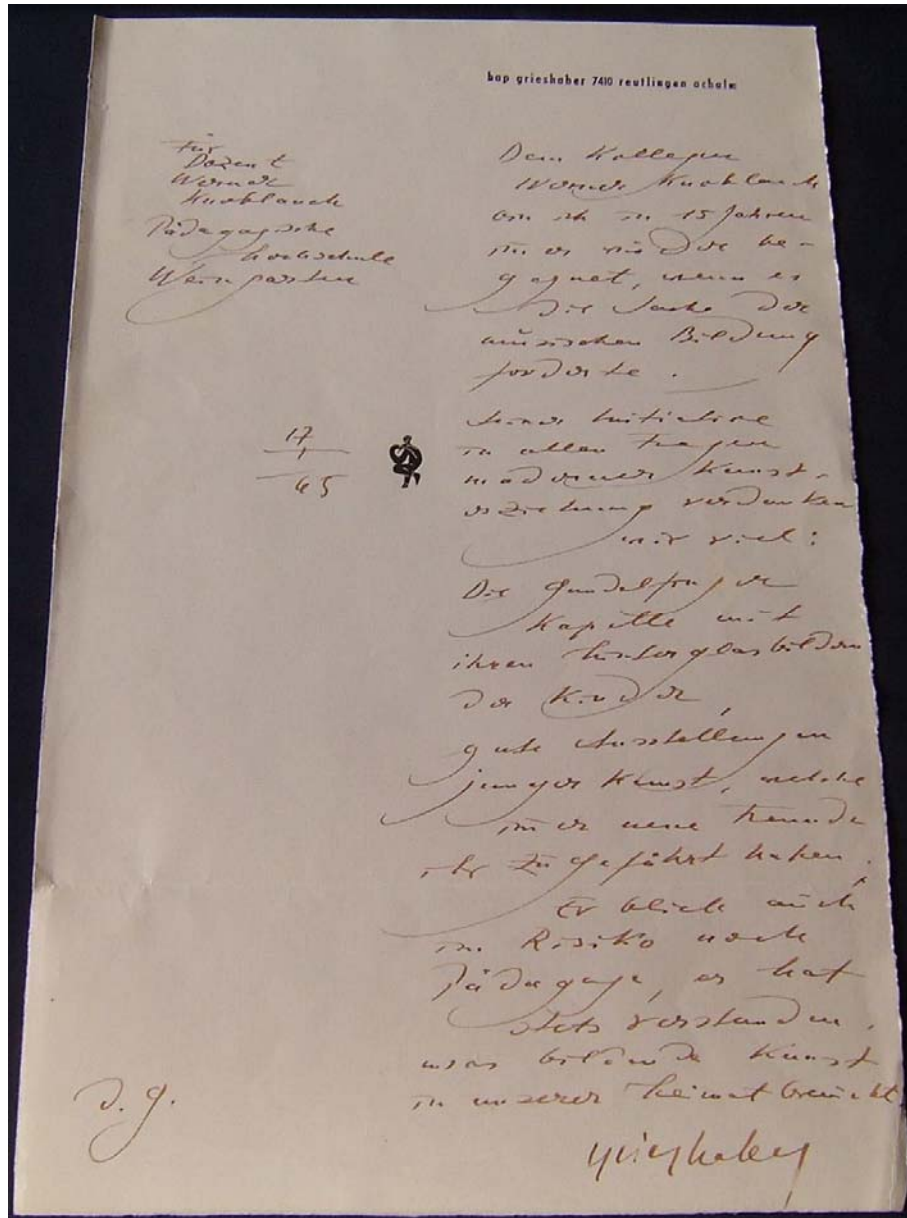 hap grieshaber 7410 reutlingen achalm
Für
Dozent
Werner
Knoblauch
Pädagogische
Hochschule
Weingarten
17
1
65
Dem Kollegen
Werner Knoblauch
bin ich in 15 Jahren
immer wieder be-
gegnet, wenn es
die Sache der
musischen Bildung
forderte.
Seiner Initiative
in allen Fragen
moderner Kunst-
erziehung verdanken
wir viel:
Die Gundelfinger
Kapelle mit
ihren Hinterglasbildern
der Kinder,
gute Ausstellungen
junger Kunst, welche
immer neue Freunde
ihr zugeführt haben.
Er blieb auch
im Risiko noch
Pädagoge, er hat
stets verstanden,
was bildende Kunst
in unserer Heimat braucht
D. G.
grieshaber